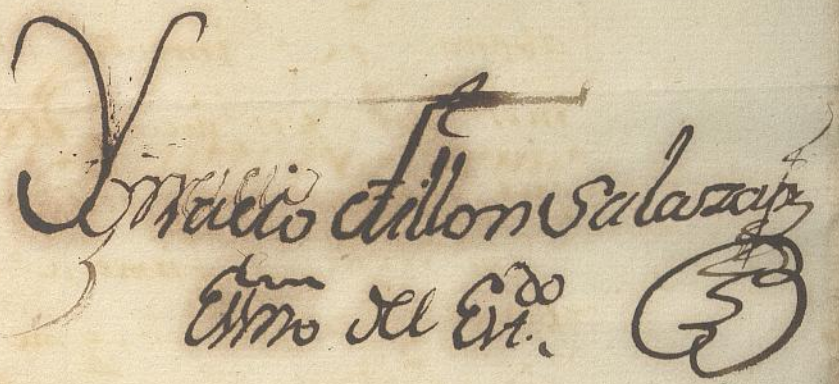 Ygnacio Tillon Salazar
Essno del Est.do